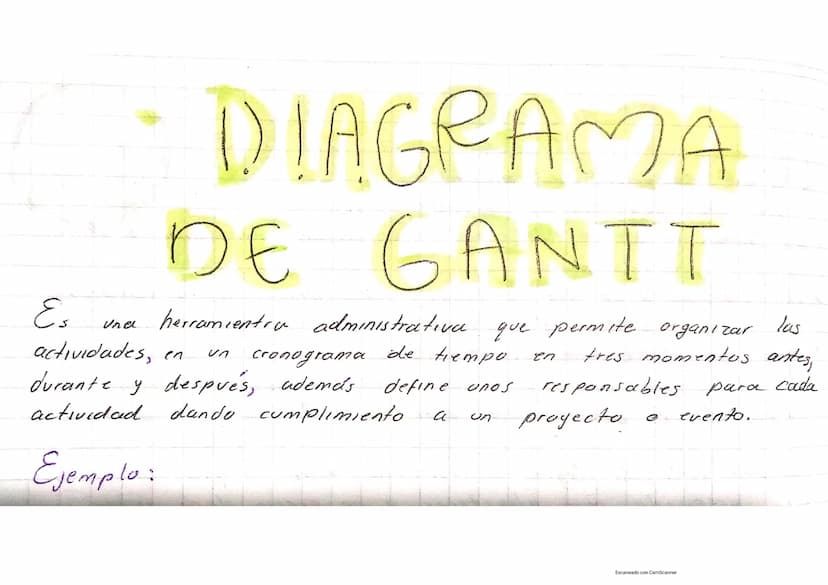 • DIAGRAMA
DE GANTT
Es una herramientra administrativa que permite organizar las
actividades, en un cronograma de tiempo en tres momentos antes,
durante y después, además define unos responsables para cada
actividad dando cumplimiento a un proyecto o evento.
Ejemplo:
Escaneado con CamScanner